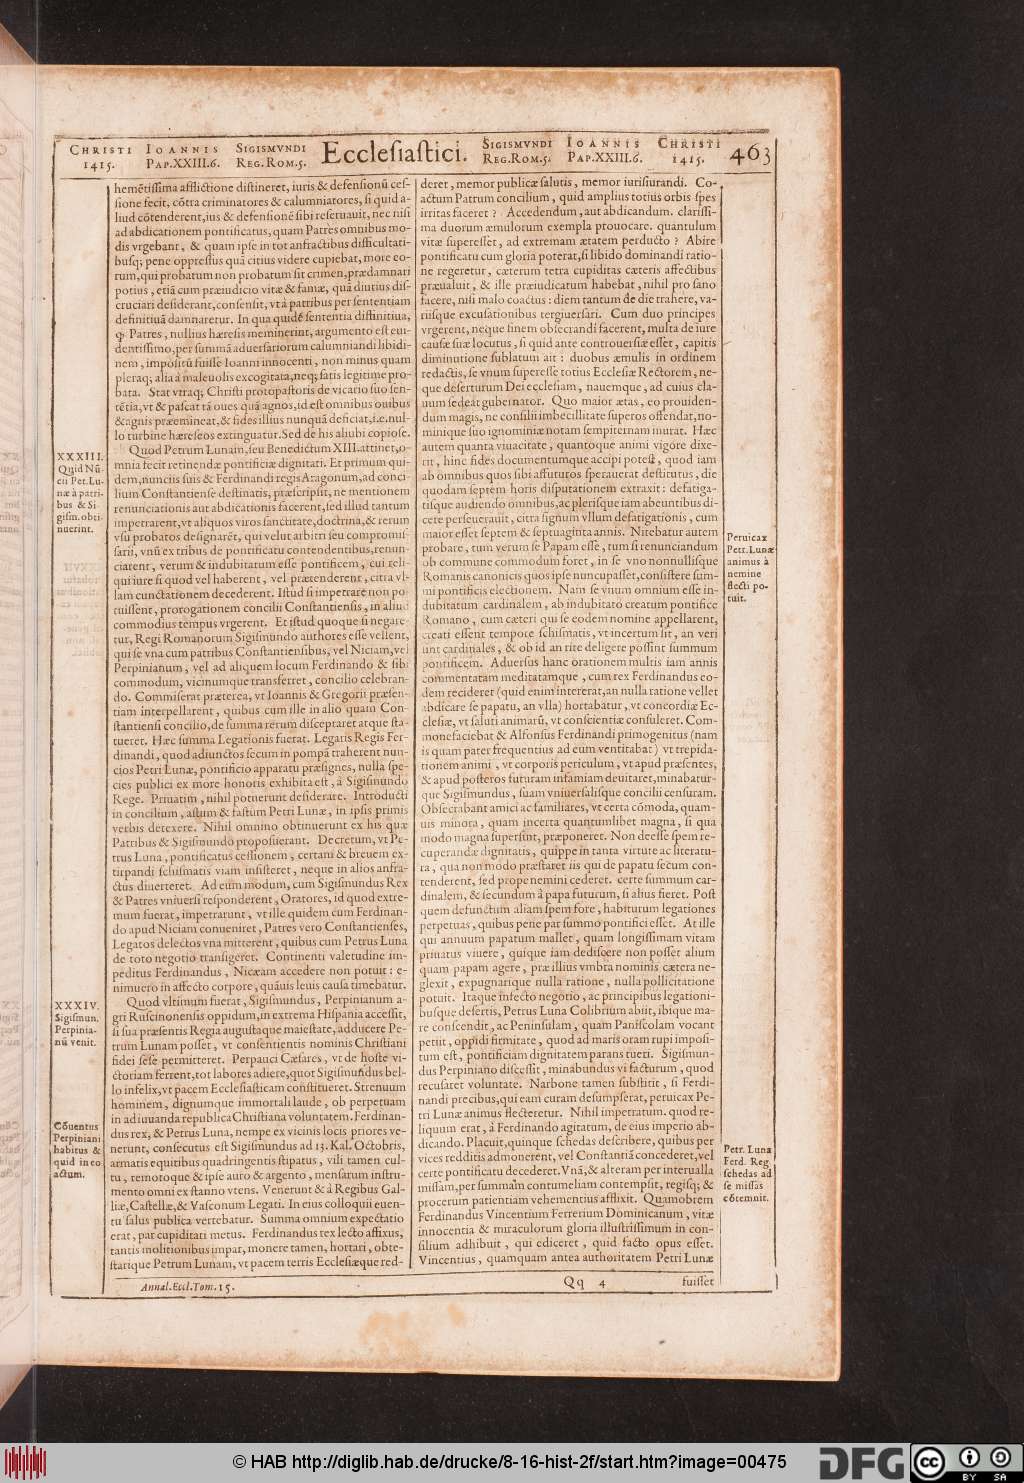 CHRISTI IOANNIS SIGISMVNDI Eccleſiaſtici. SIGISMVNDI IOANNIS CHRISTI 463
1415. PAP.XXIII.6. REG.ROM.5. REG.ROM.5. PAP.XXIII.6. 1415.
hemētiſſima afflictione diſtineret, iuris & defenſionū ceſ-
ſione fecit, cōtra criminatores & calumniatores, ſi quid a-
liud cōtenderent, ius & defenſionē ſibi reſeruauit, nec niſi
ad abdicationem pontificatus, quam Patres omnibus mo-
dis vrgebant, & quam ipſe in tot anfractibus difficultati-
buſq; pene oppreſſus quā citius videre cupiebat, more eo-
rum, qui probatum non probatum ſit crimen, prædamnari
potius, etiā cum præiudicio vitæ & famæ, quā diutius diſ-
cruciari deſiderant, conſenſit, vt à patribus per ſententiam
definitiuā damnaretur. In qua quidē ſententia diffinitiua,
ꝙ Patres, nullius hæreſis meminerint, argumento eſt eui-
dentiſſimo, per ſummā aduerſariorum calumniandi libidi-
nem, impoſitū fuiſſe Ioanni innocenti, non minus quam
pleraq; alia à maleuolis excogitata, neq; ſatis legitime pro-
bata. Stat vtraq; Chriſti protopaſtoris de vicario ſuo ſen-
tētia, vt & paſcat tā oues quā agnos, id eſt omnibus ouibus
& agnis præemineat, & fides illius nunquā deficiat, i.e. nul-
lo turbine hæreſeos extinguatur. Sed de his alibi copioſe.
XXXIII.
Quid Nū-
cii Pet.Lu-
næ à patri-
bus & Si-
giſm. obti-
nuerint.
Quod Petrum Lunam, ſeu Benedictum XIII. attinet, o-
mnia fecit retinendæ pontificiæ dignitati. Et primum qui-
dem, nunciis ſuis & Ferdinandi regis Aragonum, ad conci-
lium Conſtantienſe deſtinatis, præſcripſit, ne mentionem
renunciationis aut abdicationis facerent, ſed illud tantum
impetrarent, vt aliquos viros ſanctitate, doctrina, & rerum
vſu probatos deſignarēt, qui velut arbitri ſeu compromiſ-
ſarii, vnū ex tribus de pontificatu contendentibus, renun-
ciarent, verum & indubitatum eſſe pontificem, cui reli-
qui iure ſi quod vel haberent, vel prætenderent, citra vl-
lam cunctationem decederent. Iſtud ſi impetrare non po-
tuiſſent, prorogationem concilii Conſtantienſis, in aliud
commodius tempus vrgerent. Et iſtud quoque ſi negare-
tur, Regi Romanorum Sigiſmundo authores eſſe vellent,
qui ſe vna cum patribus Conſtantienſibus, vel Niciam, vel
Perpinianum, vel ad aliquem locum Ferdinando & ſibi
commodum, vicinumque transferret, concilio celebran-
do. Commiſerat præterea, vt Ioannis & Gregorii præſen-
tiam interpellarent, quibus cum ille in alio quam Con-
ſtantienſi concilio, de ſumma rerum diſceptaret atque ſta-
tueret. Hæc ſumma Legationis fuerat. Legatis Regis Fer-
dinandi, quod adiunctos ſecum in pompā traherent nun-
cios Petri Lunæ, pontificio apparatu præſignes, nulla ſpe-
cies publici ex more honoris exhibita eſt, à Sigiſmundo
Rege. Priuatim, nihil potuerunt deſiderare. Introducti
in concilium, aſtum & faſtum Petri Lunæ, in ipſis primis
verbis detexere. Nihil omnino obtinuerunt ex his quæ
Patribus & Sigiſmundo propoſuerant. Decretum, vt Pe-
trus Luna, pontificatus ceſſionem, certam & breuem ex-
tirpandi ſchiſmatis viam inſiſteret, neque in alios anfra-
ctus diuerteret. Ad eum modum, cum Sigiſmundus Rex
& Patres vniuerſi reſponderent, Oratores, id quod extre-
mum fuerat, impetrarunt, vt ille quidem cum Ferdinan-
do apud Niciam conueniret, Patres vero Conſtantienſes,
Legatos delectos vna mitterent, quibus cum Petrus Luna
de toto negotio tranſigeret. Continenti valetudine im-
peditus Ferdinandus, Nicæam accedere non potuit: e-
nimuero in affecto corpore, quāuis leuis cauſa timebatur.
XXXIV.
Sigiſmun.
Perpinia-
nū venit.
Quod vltimum fuerat, Sigiſmundus, Perpinianum a-
gri Ruſcinonenſis oppidum, in extrema Hiſpania acceſſit,
ſi ſua præſentis Regia auguſtaque maieſtate, adducere Pe-
trum Lunam poſſet, vt conſentientis nominis Chriſtiani
fidei ſeſe permitteret. Perpauci Cæſares, vt de hoſte vi-
ctoriam ferrent, tot labores adiere, quot Sigiſmundus bel-
lo infelix, vt pacem Eccleſiaſticam conſtitueret. Strenuum
hominem, dignumque immortali laude, ob perpetuam
in adiuuanda republica Chriſtiana voluntatem. Ferdinan-
Cōuentus
Perpiniani
habitus &
quid in eo
actum.
dus rex, & Petrus Luna, nempe ex vicinis locis priores ve-
nerunt, conſecutus eſt Sigiſmundus ad 13. Kal. Octobris,
armatis equitibus quadringentis ſtipatus, vili tamen cul-
tu, remotoque & ipſe auro & argento, menſarum inſtru-
mento omni ex ſtanno vtens. Venerunt & à Regibus Gal-
liæ, Caſtellæ, & Vaſconum Legati. In eius colloquii euen-
tu ſalus publica vertebatur. Summa omnium expectatio
erat, par cupiditati metus. Ferdinandus rex lecto affixus,
tantis molitionibus impar, monere tamen, hortari, obte-
ſtarique Petrum Lunam, vt pacem terris Eccleſiæque red-
deret, memor publicæ ſalutis, memor iurisiurandi. Co-
actum Patrum concilium, quid amplius totius orbis ſpes
irritas faceret? Accedendum, aut abdicandum. clariſſi-
ma duorum æmulorum exempla prouocare. quantulum
vitæ ſupereſſet, ad extremam ætatem perducto? Abire
pontificatu cum gloria poterat, ſi libido dominandi ratio-
ne regeretur, cæterum tetra cupiditas cæteris affectibus
præualuit, & ille præiudicatum habebat, nihil pro ſano
facere, niſi malo coactus: diem tantum de die trahere, va-
riiſque excuſationibus tergiuerſari. Cum duo principes
vrgerent, neque finem obſecrandi facerent, multa de iure
cauſæ ſuæ locutus, ſi quid ante controuerſiæ eſſet, capitis
diminutione ſublatum ait: duobus æmulis in ordinem
redactis, ſe vnum ſupereſſe totius Eccleſiæ Rectorem, ne-
que deſerturum Dei eccleſiam, nauemque, ad cuius cla-
uum ſedeat gubernator. Quo maior ætas, eo prouiden-
dum magis, ne conſilii imbecillitate ſuperos offendat, no-
minique ſuo ignominiæ notam ſempiternam inurat. Hæc
autem quanta viuacitate, quantoque animi vigore dixe-
rit, hinc fides documentumque accipi poteſt, quod iam
ab omnibus quos ſibi affuturos ſperauerat deſtitutus, die
quodam ſeptem horis diſputationem extraxit: defatiga-
tiſque audiendo omnibus, ac pleriſque iam abeuntibus di-
cere perſeuerauit, citra ſignum vllum defatigationis, cum
maior eſſet ſeptem & ſeptuaginta annis. Nitebatur autem
Peruicax
Petr. Lunæ
animus à
nemine
flecti po-
tuit.
probare, tum verum ſe Papam eſſe, tum ſi renunciandum
ob commune commodum foret, in ſe vno nonnulliſque
Romanis canonicis quos ipſe nuncupaſſet, conſiſtere ſum-
mi pontificis electionem. Nam ſe vnum omnium eſſe in-
dubitatum cardinalem, ab indubitato creatum pontifice
Romano, cum cæteri qui ſe eodem nomine appellarent,
creati eſſent tempore ſchiſmatis, vt incertum ſit, an veri
ſint cardinales, & ob id an rite deligere poſſint ſummum
pontificem. Aduerſus hanc orationem multis iam annis
commentatam meditatamque, cum rex Ferdinandus eo-
dem recideret (quid enim intererat, an nulla ratione vellet
abdicare ſe papatu, an vlla) hortabatur, vt concordiæ Ec-
cleſiæ, vt ſaluti animarū, vt conſcientiæ conſuleret. Com-
monefaciebat & Alfonſus Ferdinandi primogenitus (nam
is quam pater frequentius ad eum ventitabat) vt trepida-
tionem animi, vt corporis periculum, vt apud præſentes,
& apud poſteros futuram infamiam deuitaret, minabatur-
que Sigiſmundus, ſuam vniuerſaliſque concilii cenſuram.
Obſecrabant amici ac familiares, vt certa cōmoda, quam-
uis minora, quam incerta quantumlibet magna, ſi qua
modo magna ſuperſint, præponeret. Non deeſſe ſpem re-
cuperandæ dignitatis, quippe in tanta virtute ac literatu-
ra, qua non modo præſtaret iis qui de papatu ſecum con-
tenderent, ſed prope nemini cederet. certe ſummum car-
dinalem, & ſecundum à papa futurum, ſi alius fieret. Poſt
quem defunctum aliam ſpem fore, habiturum legationes
perpetuas, quibus pene par ſummo pontifici eſſet. At ille
qui annuum papatum mallet, quam longiſſimam vitam
priuatus viuere, quique iam dediſcere non poſſet alium
quam papam agere, præ illius vmbra nominis cætera ne-
glexit, expugnarique nulla ratione, nulla pollicitatione
potuit. Itaque infecto negotio, ac principibus legationi-
buſque deſertis, Petrus Luna Colibrium abiit, ibique ma-
re conſcendit, ac Peninſulam, quam Paniſcolam vocant
petiit, oppidi firmitate, quod ad maris oram rupi impoſi-
tum eſt, pontificiam dignitatem parans tueri. Sigiſmun-
dus Perpiniano diſceſſit, minabundus vi facturum, quod
recuſaret voluntate. Narbone tamen ſubſtitit, ſi Ferdi-
nandi precibus, qui eam curam deſumpſerat, peruicax Pe-
tri Lunæ animus flecteretur. Nihil imperatum. quod re-
liquum erat, à Ferdinando agitatum, de eius imperio ab-
dicando. Placuit, quinque ſchedas deſcribere, quibus per
Petr. Luna
Ferd. Reg.
ſchedas ad
ſe miſſas
cōtemnit.
vices redditis admonerent, vel Conſtantiā concederet, vel
certe pontificatu decederet. Vnā, & alteram per interualla
miſſam, per ſummam contumeliam contempſit, regiſq; &
procerum patientiam vehementius afflixit. Quamobrem
Ferdinandus Vincentium Ferrerium Dominicanum, vitæ
innocentia & miraculorum gloria illuſtriſſimum in con-
ſilium adhibuit, qui ediceret, quid facto opus eſſet.
Vincentius, quamquam antea authoritatem Petri Lunæ
Annal.Eccl.Tom.15. Qq 4 fuiſſet
© HAB http://diglib.hab.de/drucke/8-16-hist-2f/start.htm?image=00475
DFG
cc BY SA